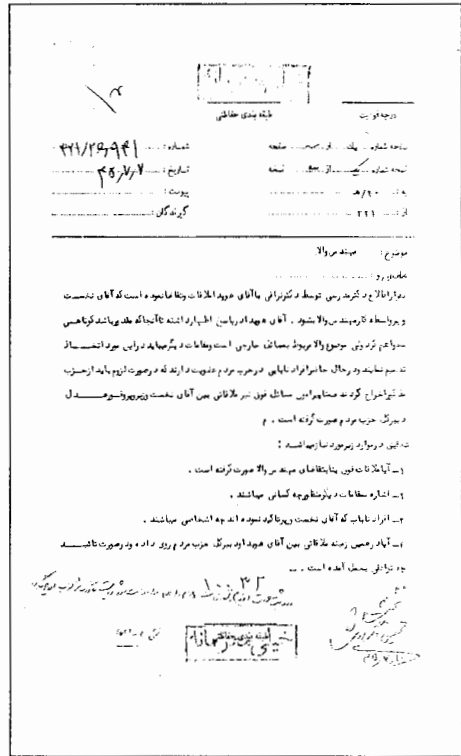 خیلی محرمانه
طبقه بندی حفاظتی
درجه فوریت
صفحه شماره یک از صفحه
شماره: ۳۲۱/۲۵۹۴۱
نسخه شماره یک از نسخه
تاریخ: ۴۵/۷/۷
به: ۲۰ / ه‍
پیوست:
از: ۳۲۱
گیرندگان:
موضوع: مهندس والا
بقرار اطلاع دکتر مدرسی توسط دکتر نراقی با آقای هویدا ملاقات و تقاضا نموده است که آقای نخست
وزیر واسطه کار مهندس والا بشود . آقای هویدا در پاسخ اظهار داشته تا آنجا که مقدور باشد کوتاهی
نخواهم کرد ولی موضوع والا مربوط بمسائل خارجی است و مقامات دیگر میباید در این مورد اتخاذ
تصمیم نمایند و در حال حاضر افراد نابابی در حزب مردم عضویت دارند که در صورت لزوم باید از حزب
اخراج گردند ضمنا پیرامون مسائل فوق نیز ملاقاتی بین آقای نخست وزیر و پروفسور عدل
دبیر کل حزب مردم صورت گرفته است . م
تحقیق در موارد زیر مورد نیاز میباشد :
۱ــ آیا ملاقات فوق بنا بتقاضای مهندس والا صورت گرفته است .
۲ــ اشاره بمقامات دیگر منظور چه کسانی میباشند .
۳ــ افراد ناباب که آقای نخست وزیر تاکید نموده اند چه اشخاصی میباشند .
۴ــ آیا در همین زمینه ملاقاتی بین آقای هویدا و دبیر کل حزب مردم روی داده و در صورت تائید
چه مذاکراتی بعمل آمده است .
۱۰۰۳۲
طبقه بندی حفاظتی
خیلی محرمانه